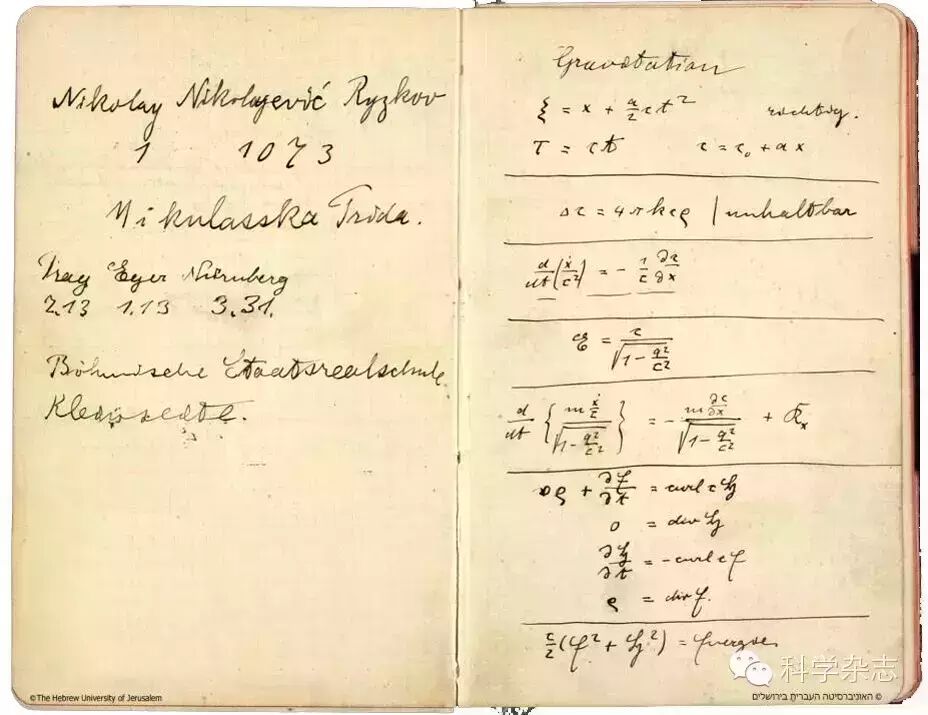 Nikolay Nikolajević Ryzkov
1 1073
Mikulasska Trida.
Prag Eger Nürnberg
2.13 1.13 3.31.
Böhmische Staatsrealschule
Gravitation
ξ = x + a/2 c t² richtig.
T = c t c = c₀ + a x
Δc = 4πkcρ | unhaltbar
d/dt (ẋ/c²) = − 1/c ∂c/∂x
E = c / √(1 − q²/c²)
d/dt { m ẋ/c / √(1 − q²/c²) } = − m ∂c/∂x / √(1 − q²/c²) + 𝔎ₓ
𝔳ρ + ∂𝔈/∂t = curl c ℌ
0 = div ℌ
∂ℌ/∂t = − curl c 𝔈
ρ = div 𝔈.
c/2 (𝔈² + ℌ²) = Energie
©The Hebrew University of Jerusalem
© האוניברסיטה העברית בירושלים
科学杂志